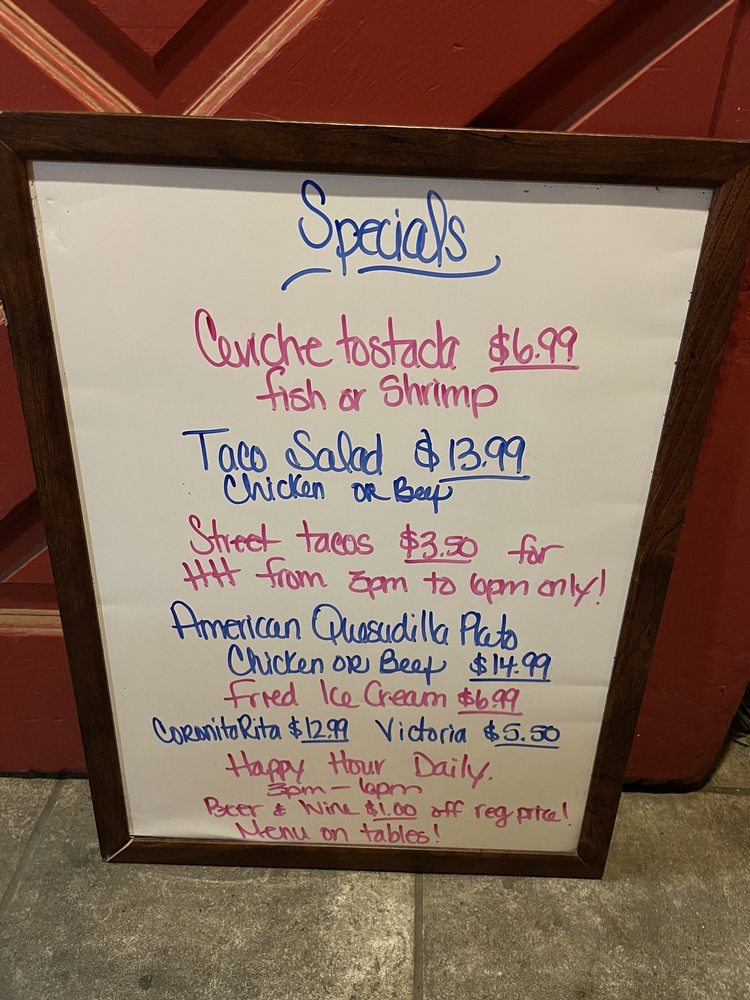 Specials
Ceviche tostada $6.99
fish or Shrimp
Taco Salad $13.99
Chicken OR Beef
Street tacos $3.50 for
HH from 3pm to 6pm only!
American Quesudilla Plato
Chicken OR Beef $14.99
Fried Ice Cream $6.99
CoronitaRita $12.99 Victoria $5.50
Happy Hour Daily.
3pm - 6pm
Beer & Wine $1.00 off reg price!
Menu on tables!